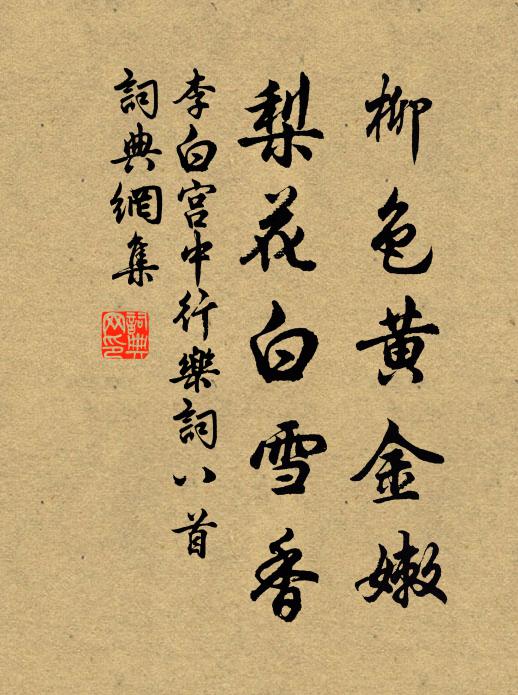 柳色黄金嫩
梨花白雪香
李白宮中行樂詞八首
詞典網集
詞典
网印